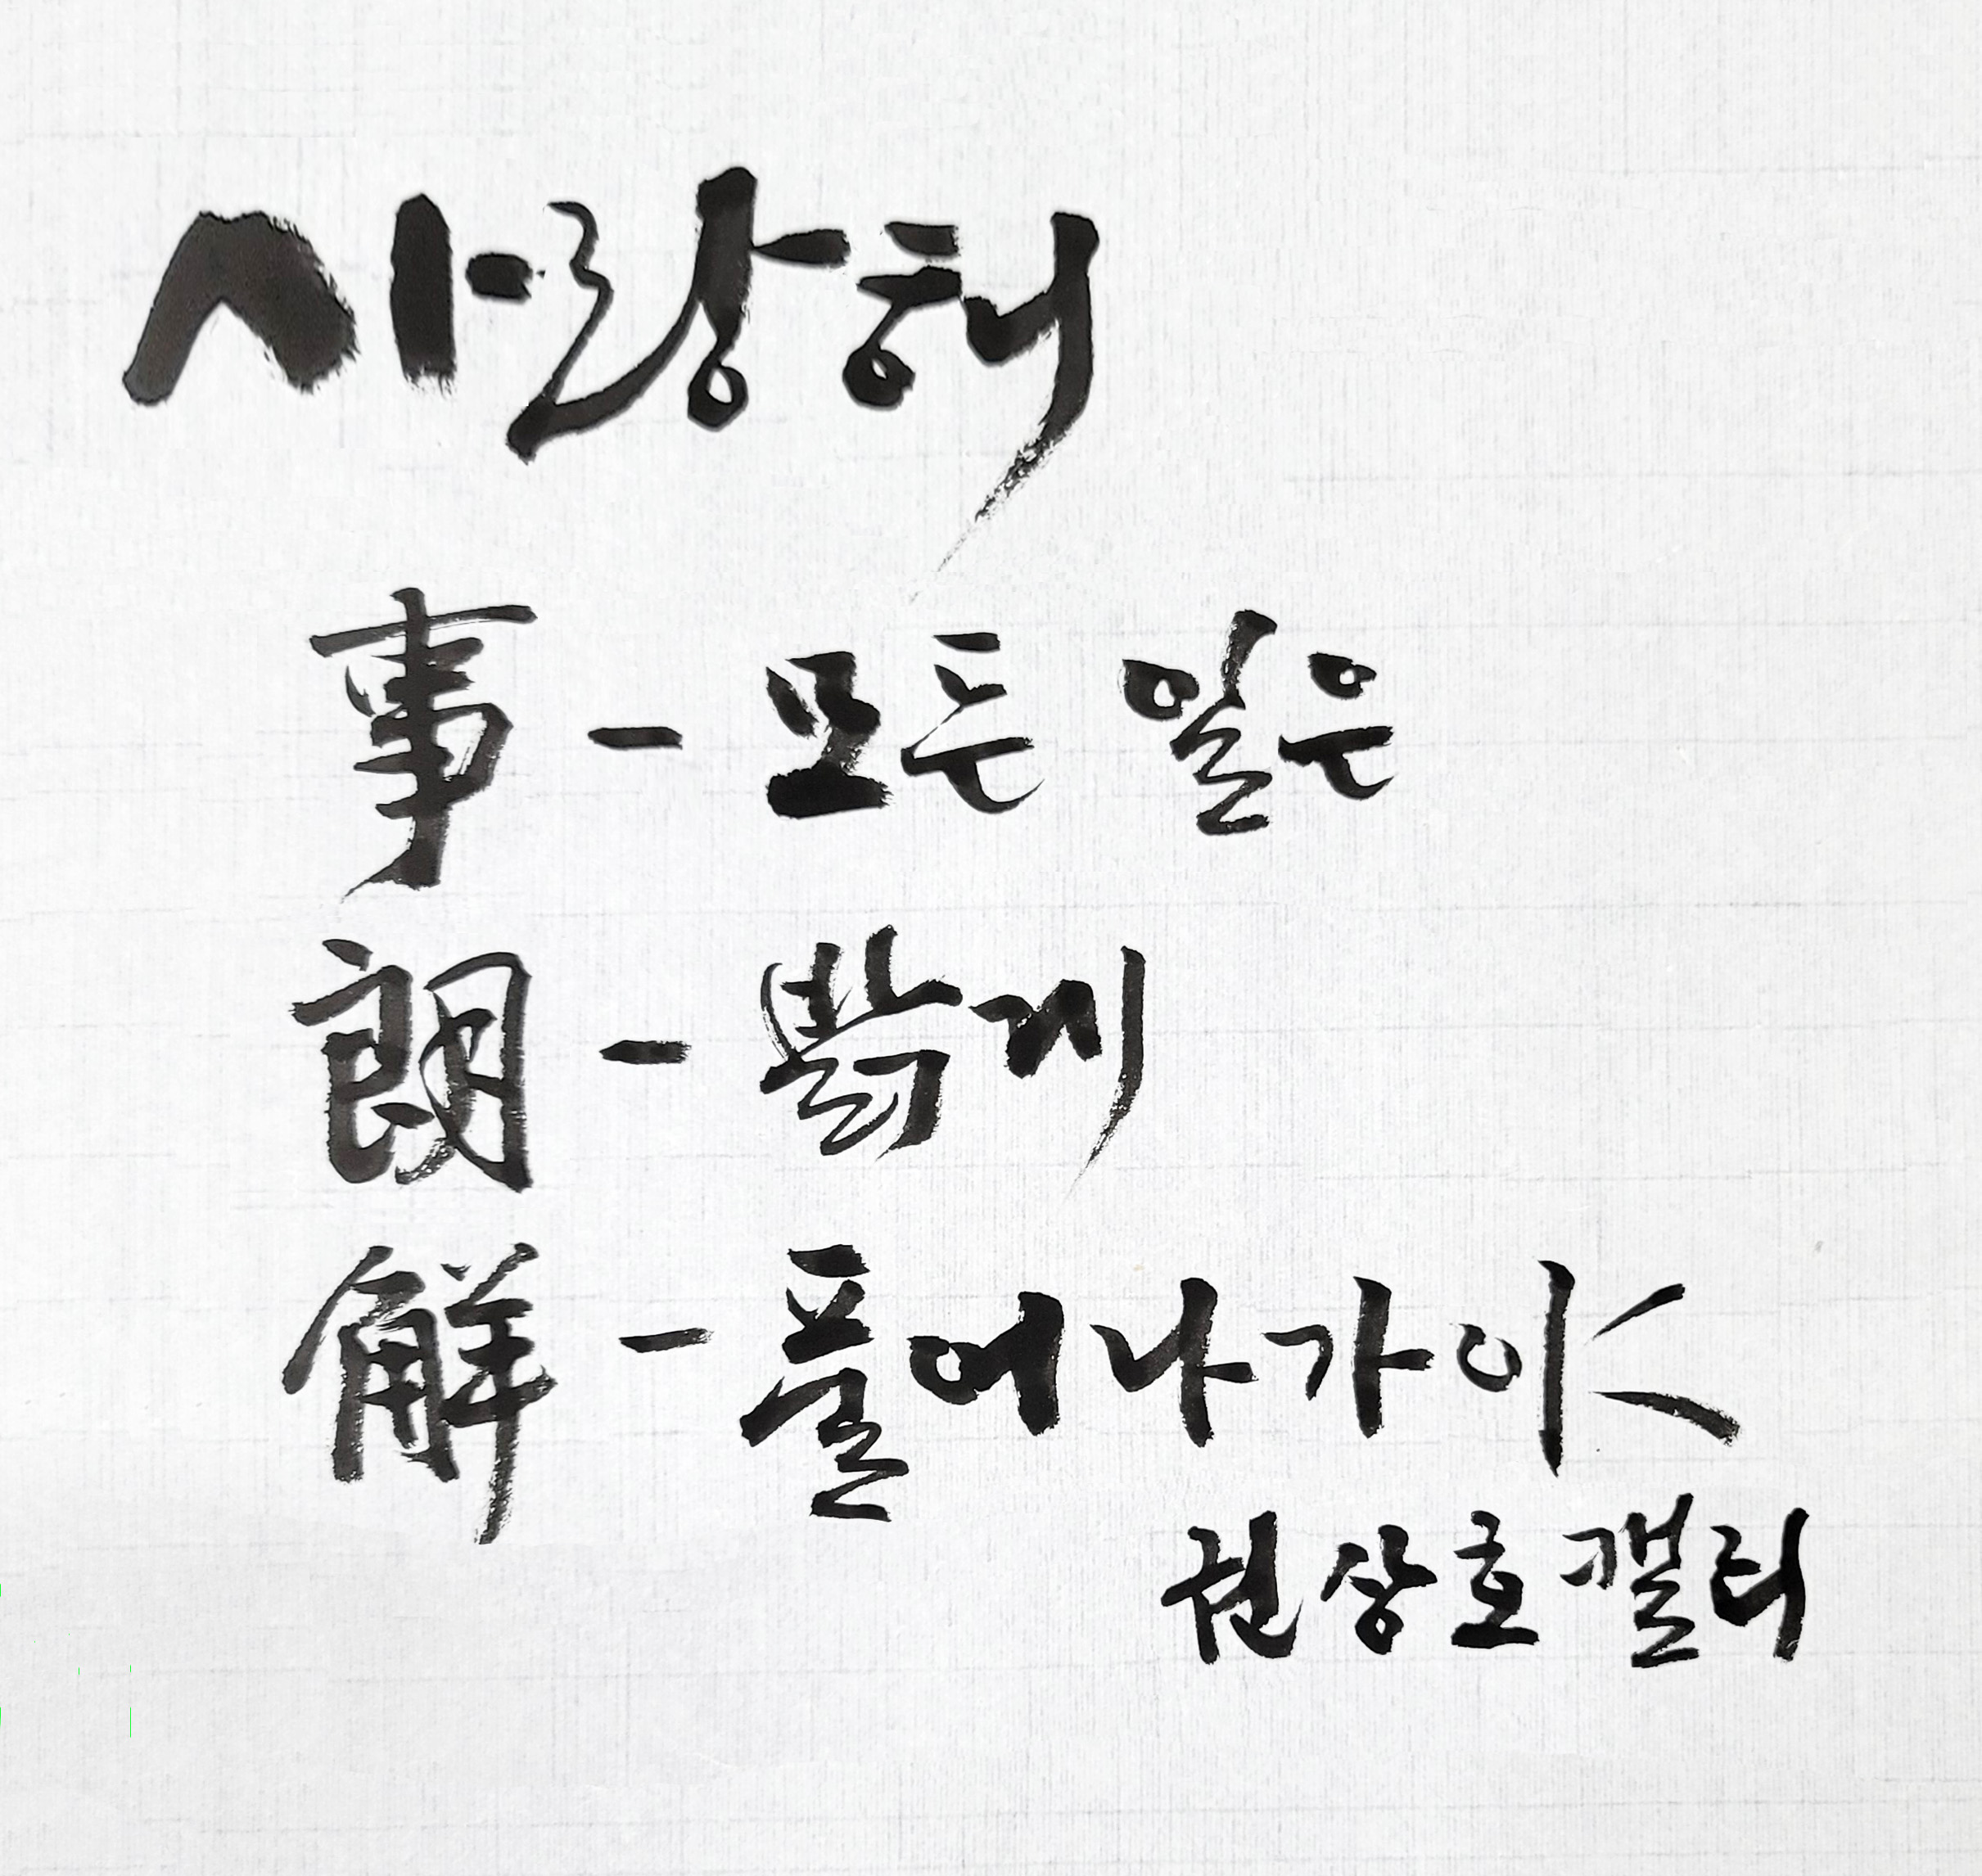 사랑해
事 - 모든 일은
朗 - 밝게
解 - 풀어나가야
권상호 갤러리